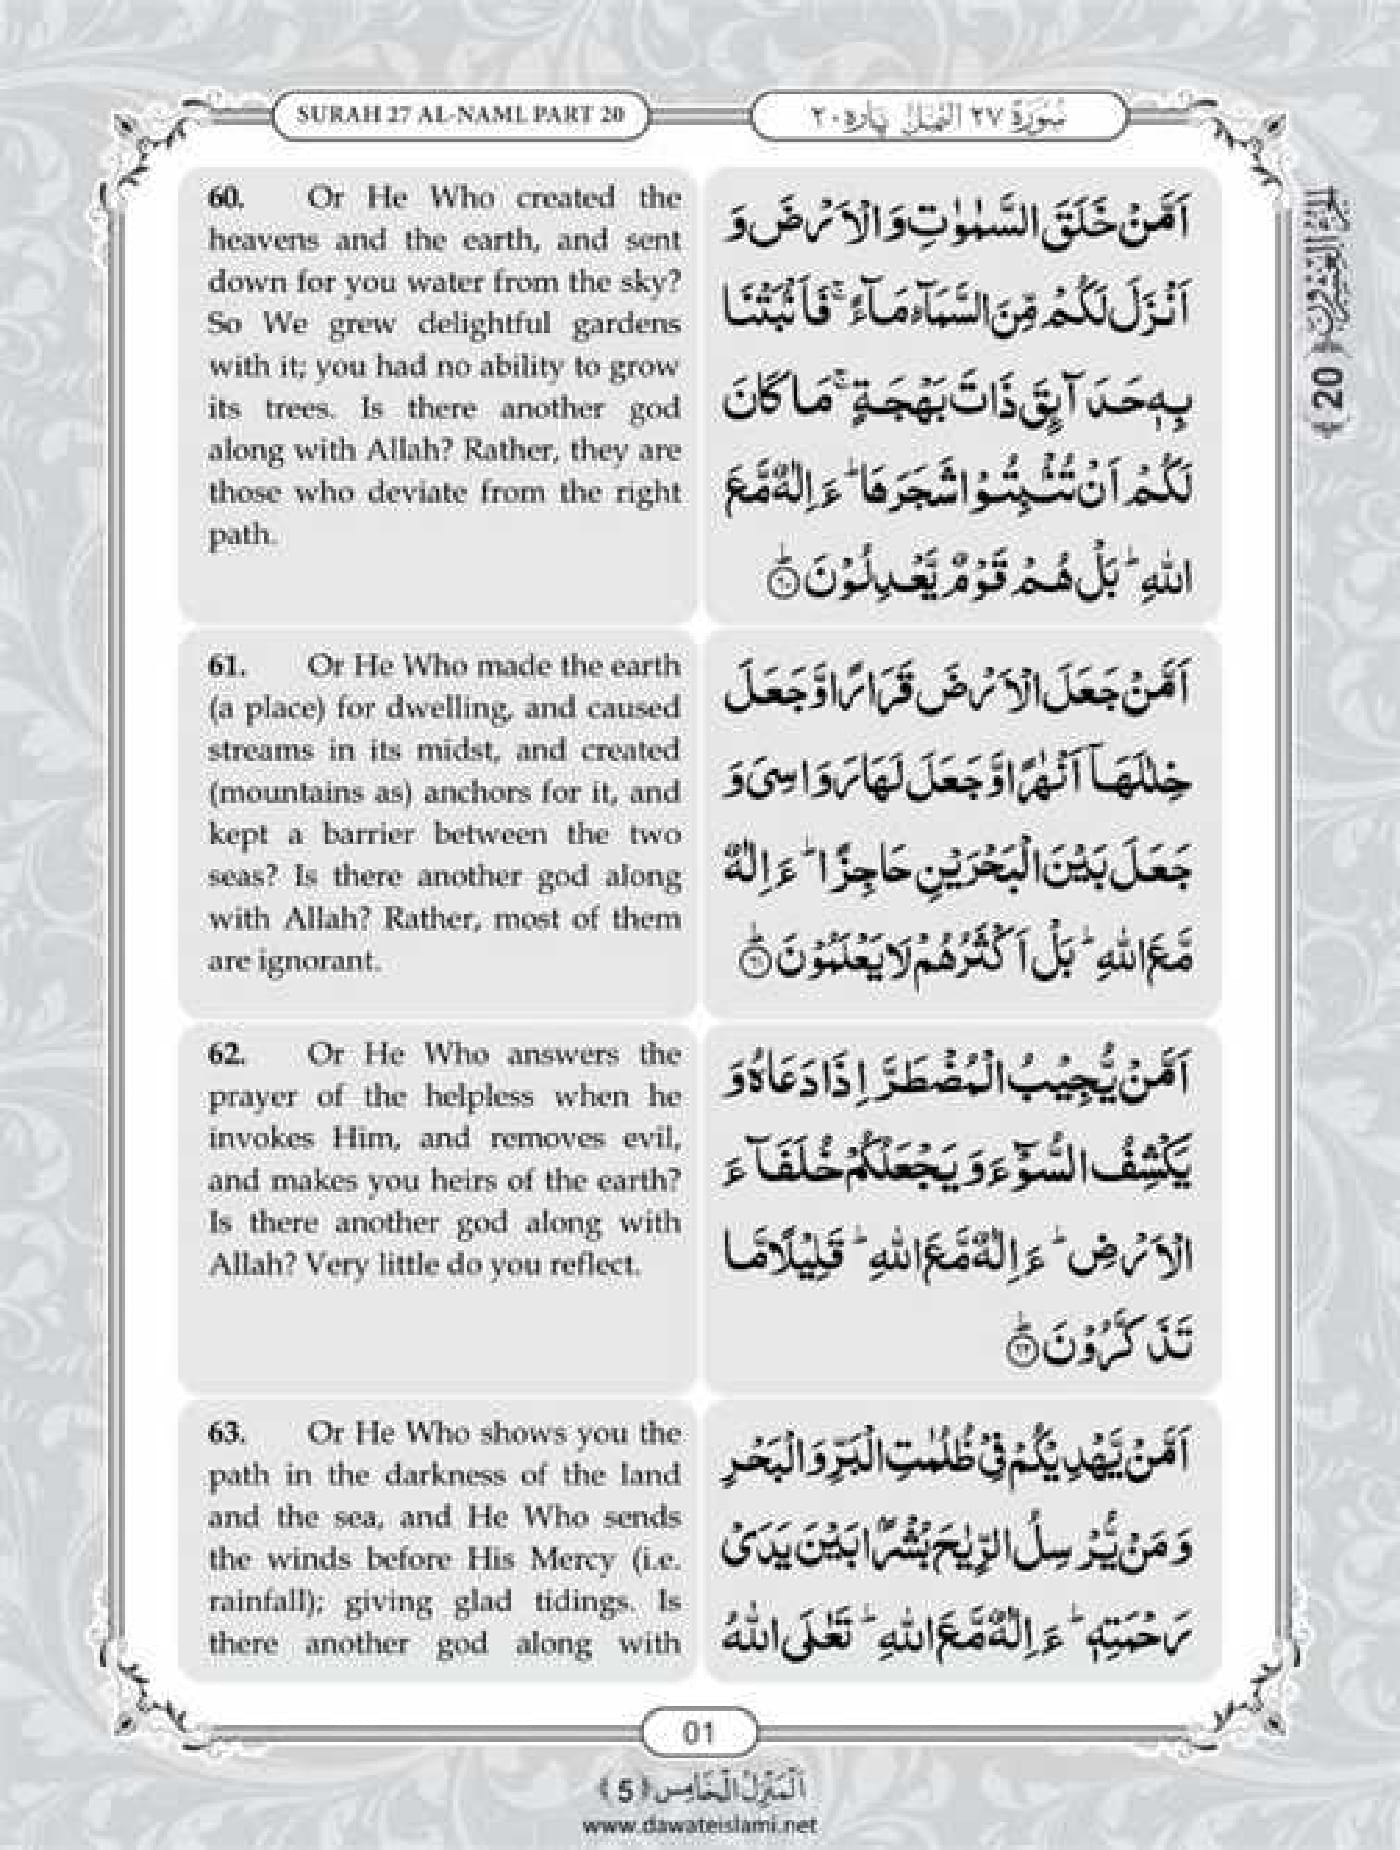 SURAH 27 AL-NAML PART 20
سُوْرَةُ ٢٧ النَّمْل پارہ ٢٠
60. Or He Who created the
heavens and the earth, and sent
down for you water from the sky?
So We grew delightful gardens
with it; you had no ability to grow
its trees. Is there another god
along with Allah? Rather, they are
those who deviate from the right
path.
اَمَّنْ خَلَقَ السَّمٰوٰتِ وَالْاَرْضَ وَ
اَنْزَلَ لَكُمْ مِّنَ السَّمَآءِ مَآءً ۚ فَاَنْۢبَتْنَا
بِهٖ حَدَآىِٕقَ ذَاتَ بَهْجَةٍ ۚ مَا كَانَ
لَكُمْ اَنْ تُنْۢبِتُوْا شَجَرَهَا ؕ ءَاِلٰهٌ مَّعَ
اللّٰهِ ؕ بَلْ هُمْ قَوْمٌ يَّعْدِلُوْنَ ؕ﴿۶۰﴾
61. Or He Who made the earth
(a place) for dwelling, and caused
streams in its midst, and created
(mountains as) anchors for it, and
kept a barrier between the two
seas? Is there another god along
with Allah? Rather, most of them
are ignorant.
اَمَّنْ جَعَلَ الْاَرْضَ قَرَارًا وَّ جَعَلَ
خِلٰلَهَاۤ اَنْهٰرًا وَّ جَعَلَ لَهَا رَوَاسِیَ وَ
جَعَلَ بَيْنَ الْبَحْرَيْنِ حَاجِزًا ؕ ءَاِلٰهٌ
مَّعَ اللّٰهِ ؕ بَلْ اَكْثَرُهُمْ لَا يَعْلَمُوْنَ ؕ﴿۶۱﴾
62. Or He Who answers the
prayer of the helpless when he
invokes Him, and removes evil,
and makes you heirs of the earth?
Is there another god along with
Allah? Very little do you reflect.
اَمَّنْ يُّجِيْبُ الْمُضْطَرَّ اِذَا دَعَاهُ وَ
يَكْشِفُ السُّوْٓءَ وَ يَجْعَلُكُمْ خُلَفَآءَ
الْاَرْضِ ؕ ءَاِلٰهٌ مَّعَ اللّٰهِ ؕ قَلِيْلًا مَّا
تَذَكَّرُوْنَ ؕ﴿۶۲﴾
63. Or He Who shows you the
path in the darkness of the land
and the sea, and He Who sends
the winds before His Mercy (i.e.
rainfall); giving glad tidings. Is
there another god along with
اَمَّنْ يَّهْدِيْكُمْ فِیْ ظُلُمٰتِ الْبَرِّ وَ الْبَحْرِ
وَ مَنْ يُّرْسِلُ الرِّيٰحَ بُشْرًۢا بَيْنَ يَدَیْ
رَحْمَتِهٖ ؕ ءَاِلٰهٌ مَّعَ اللّٰهِ ؕ تَعٰلَی اللّٰهُ
اَلْجُزْءُ الْعِشْرُوْنَ ﴿20﴾
01
اَلْمَنْزِلُ الْخَامِس ﴿5﴾
www.dawateislami.net